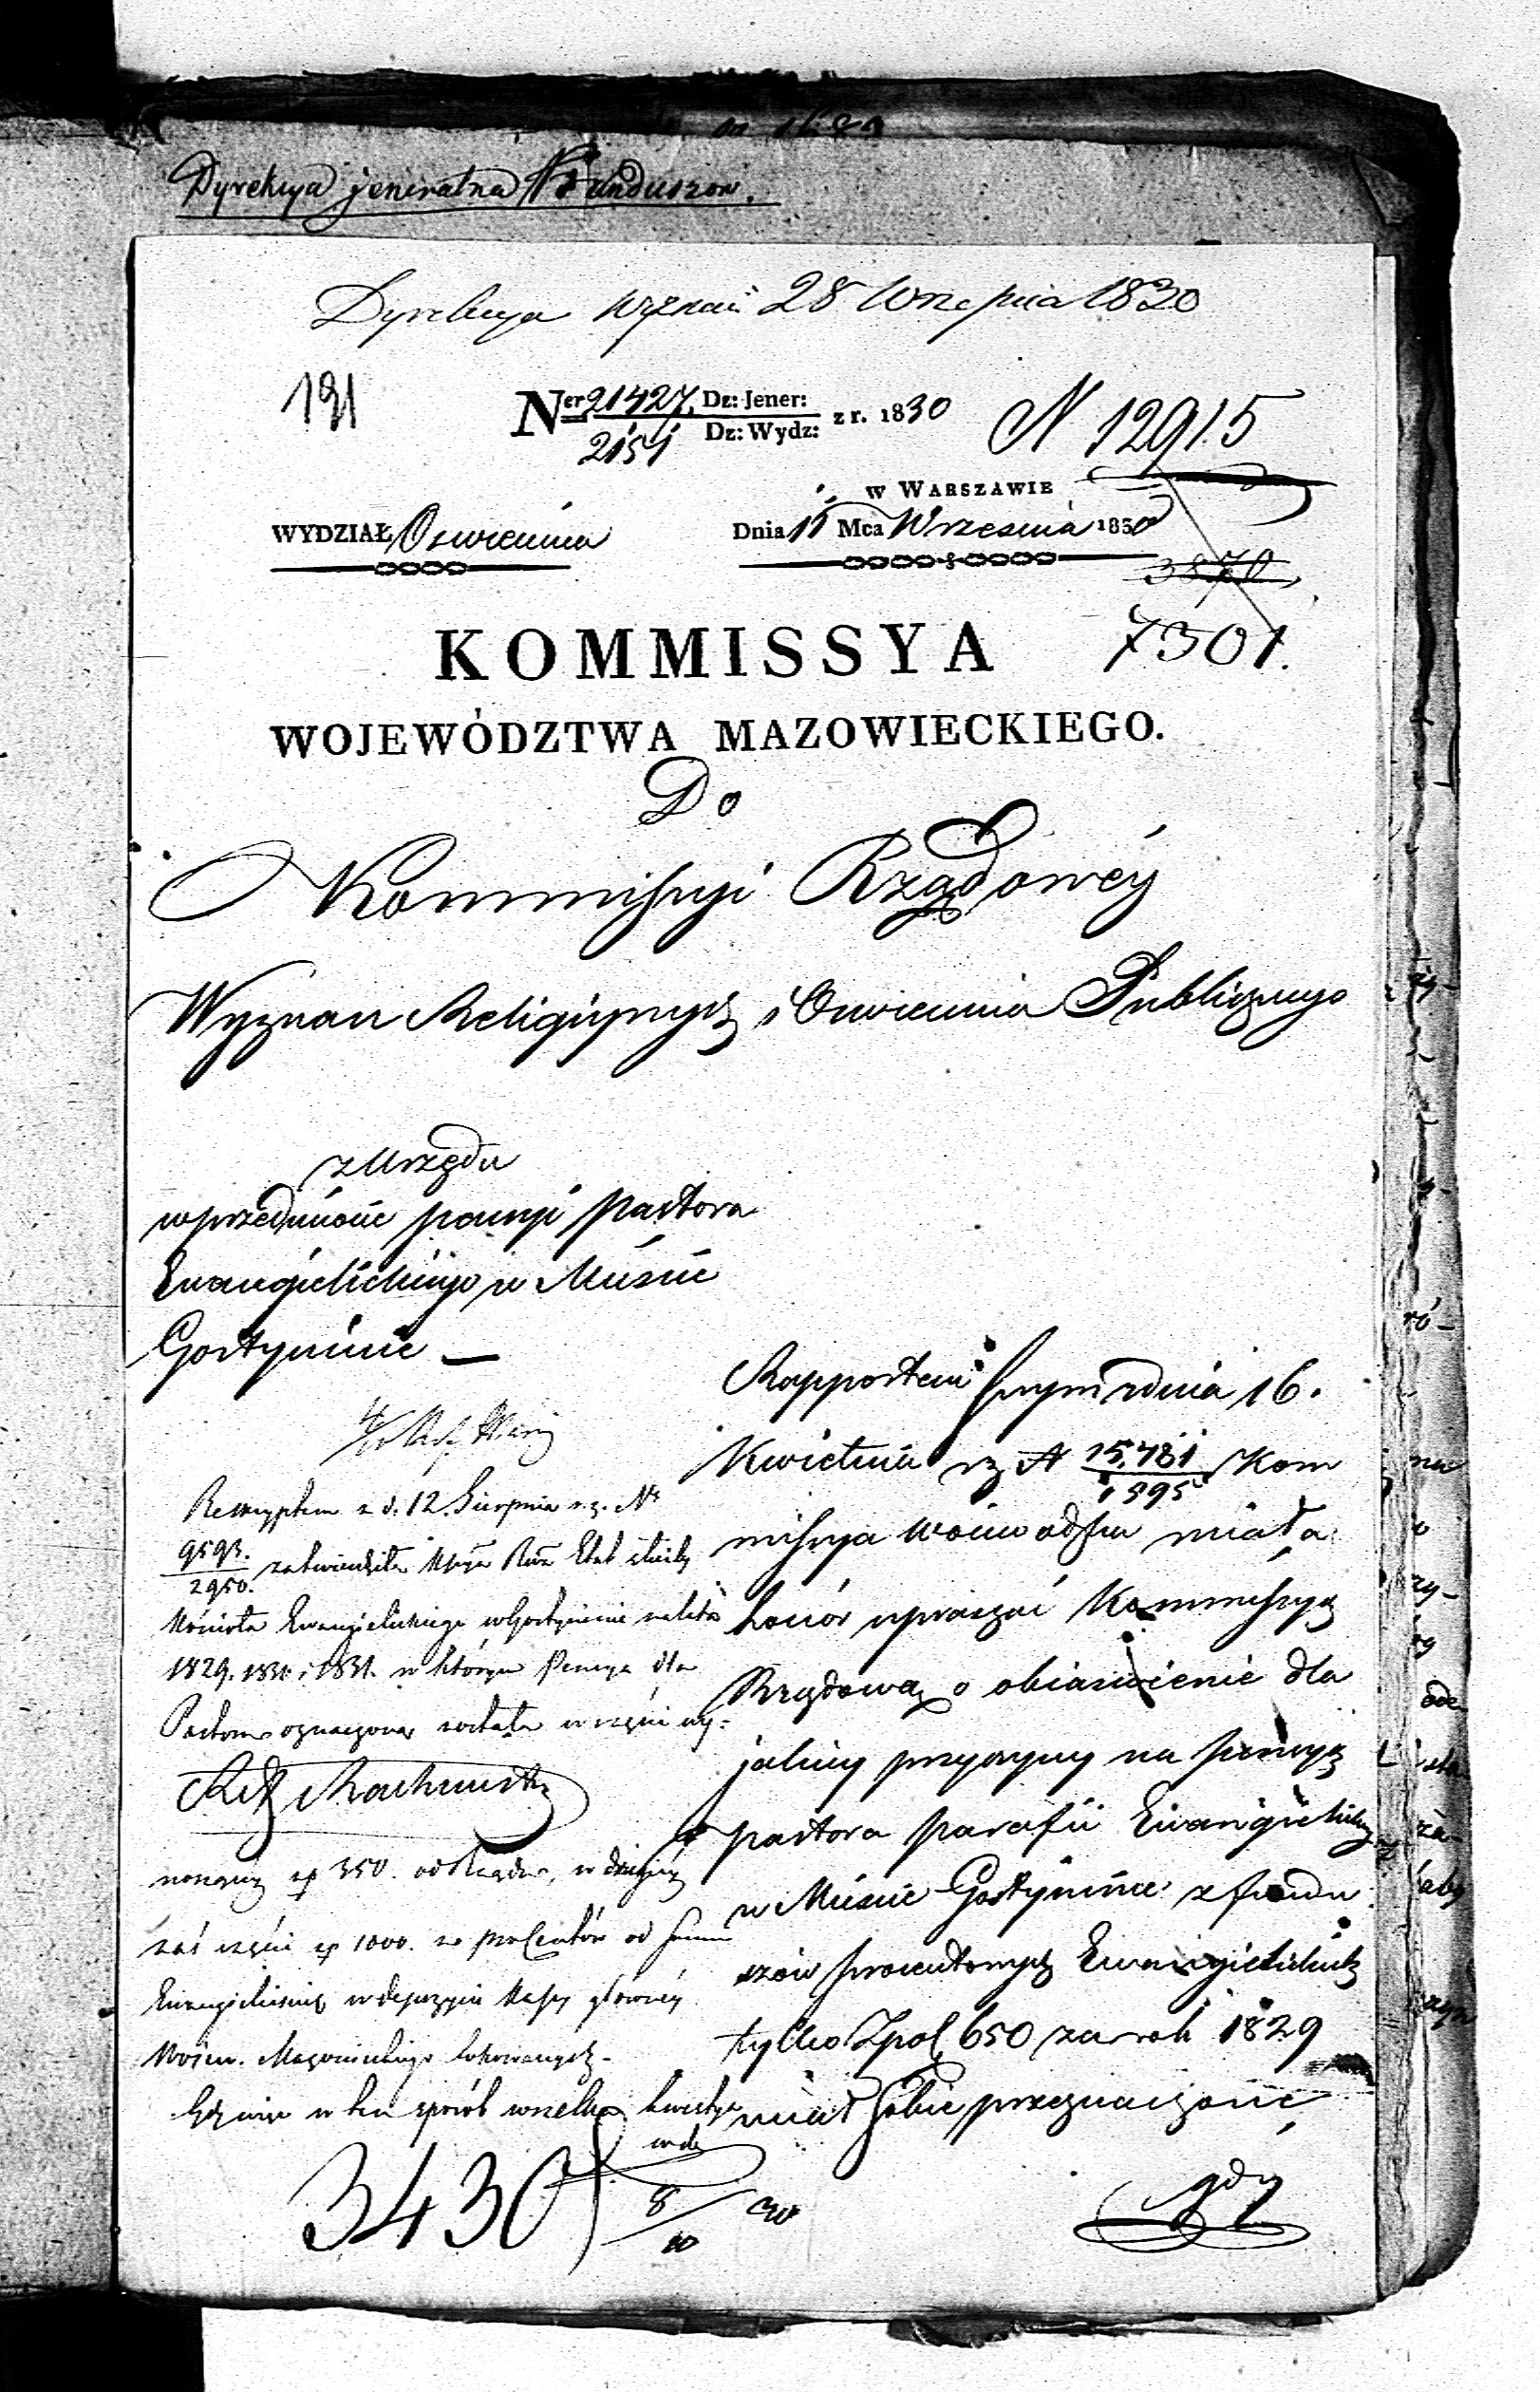 Dyrekcya jeneralna Funduszow.
Dyrekcya wyznań 28 Września 1830
191
Ner 21427. Dz: Jener: z r. 1830
2151 Dz: Wydz:
N 12915
w Warszawie
WYDZIAŁ Oswiecenia
Dnia 11 Mca Wrzesnia 1830
3870
7301.
KOMMISSYA
WOJEWÓDZTWA MAZOWIECKIEGO.
Do
Kommissyi Rządowéy
Wyznan Religiynych i Oswiecenia Publicznego
z Urzędu
w przedmiocie pensyi pastora
Ewangielickiego w Mieście
Gostyninie —
Rapportem swym z dnia 16.
Kwietnia r. z. N 15,481 Kom
1595
missya Woiewodztwa miała
honór upraszać Kommissyą
Rządową o obiaśnienie dla
jakiey przyczyny na pensyą
pastora parafii Ewangielickiey
w Mieście Gostyninie z fundu
szów procentowych Ewangielickich
tylko Zpol 650 za rok 1829
miał sobie przeznaczone
gdy
Reskryptem z d. 12. Sierpnia r. z. Nr
9593.
2950. zatwierdziła Etat
Kościoła Ewangielickiego w Gostyninie na lata
1829. 1830 i 1831. w którym Pensya dla
Pastora oznaczona została w części
350. od Rządu, w drugiéy
zaś części zp 1000. z procentów od Summ
Ewangielickich w depozycie Kassy główney
Woiew. Mazowieckiego lokowanych.
Gdy więc w ten sposób wszelka kwestya
3430
8/10 30